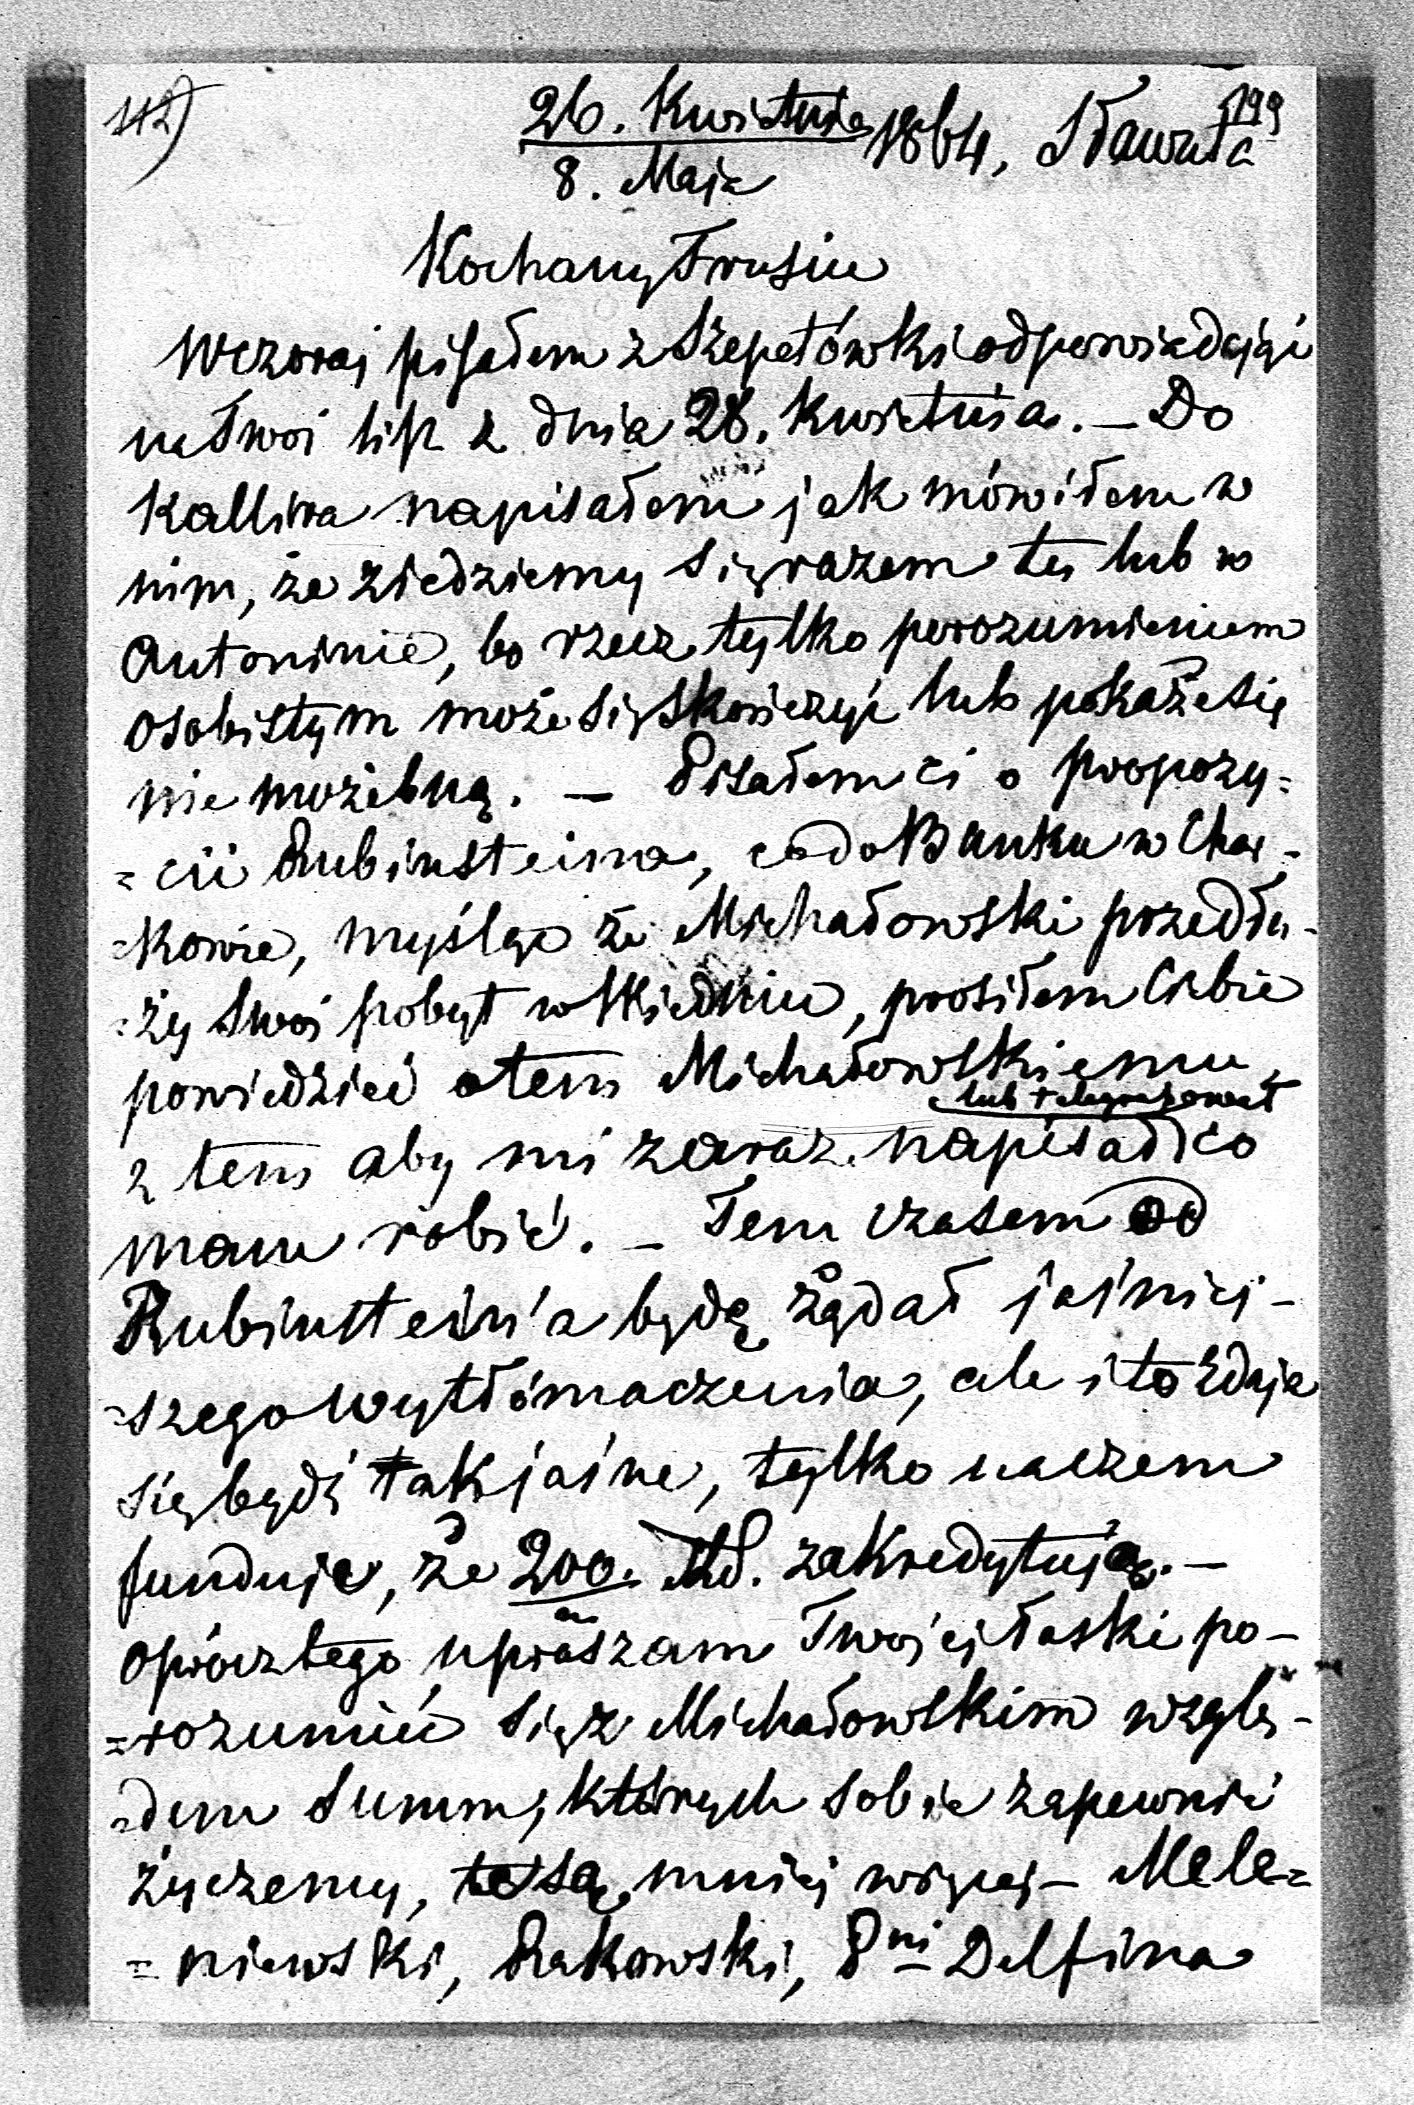 112)
199
26. Kwietnia 1864, Sławuta
8. Maja
Kochany Trusiu
Wczoraj pisałem z Szepetówki odpowiadając
na Twoi list z dnia 28. Kwietnia. — Do
Kallira napisałem jak mówiłem w
nim, że ziedziemy się razem tu lub w
Antoninie, bo rzecz tylko porozumieniem
osobistym może się skończyć lub pokaże się
nie możebną. — Pisałem ci o propozy=
=cii Rubinsteina, co do Banku w Char-
=kowie, myśląc że Michałowski przedłu-
=ży swói pobyt w Wiedniu, prosiłem Ciebie
powiedzieć o tem Michałowskiemu
lub telegrafował
z tem aby mi zaraz napisał co
mam robić. — Tem czasem od
Rubinstein'a będę żądał jaśniej-
=szego wytłómaczenia, ale i to zdaje
się będzi tak jasne, tylko na czem
funduje, że 200. zakredytują. —
oprócz tego upraszam Twojej łaski po-
=rozumieć się z Michałowskim wzglę-
=dem Summ, których sobie zapewnić
życzemy, te są, mniej więcej — Mele=
=niewski, Rakowski, Pni Delfina